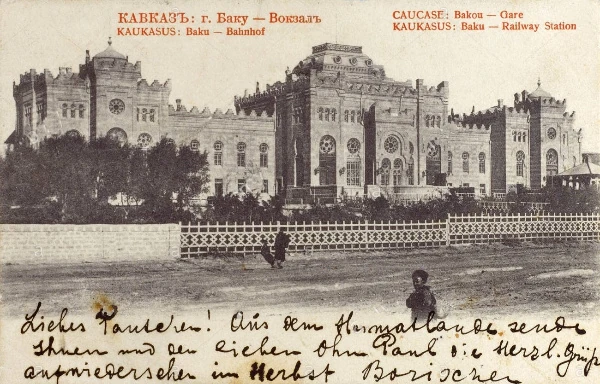 КАВКАЗЪ: г. Баку — Вокзалъ
KAUKASUS: Baku — Bahnhof
CAUCASE: Bakou — Gare
KAUKASUS: Baku — Railway Station
Liebes Tanteren! Aus dem Heimatlande sende
Ihnen und den lieben Ohm Paul die Herzl. Grüße
aufwiedersehen im Herbst Borischen